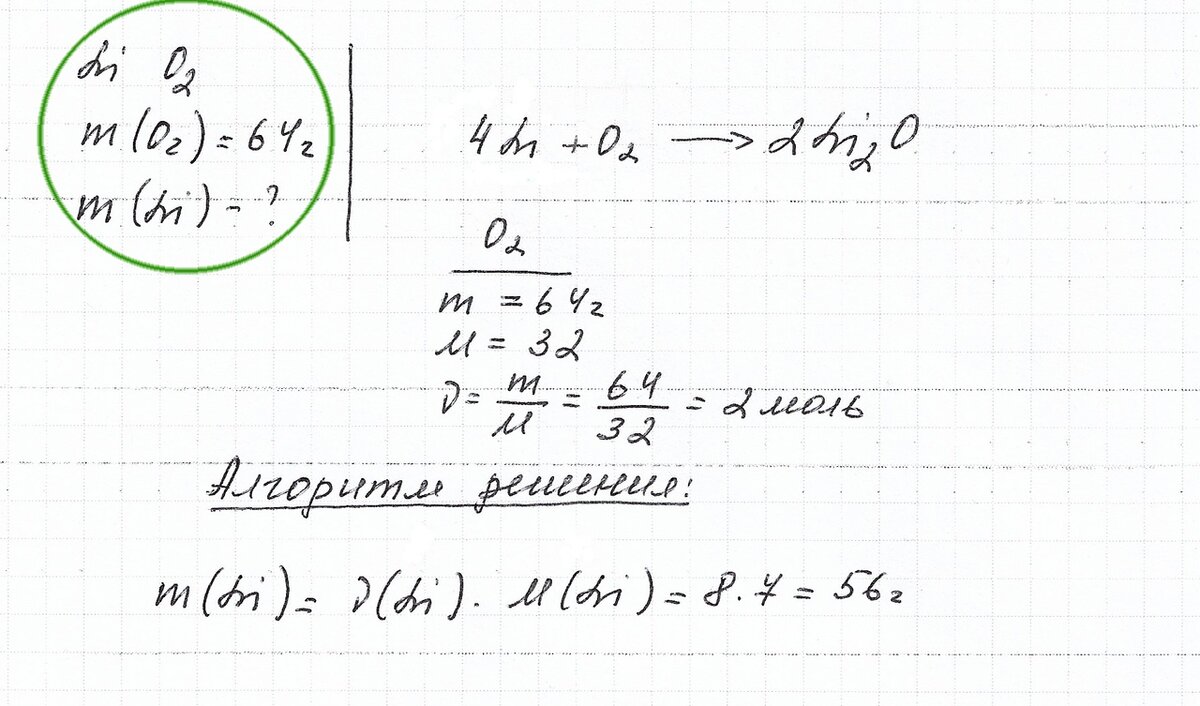 Li O₂
m (O₂) = 64г
m (Li) - ?
4Li + O₂ → 2Li₂O
O₂
m = 64г
M = 32
ν = m/M = 64/32 = 2 моль
Алгоритм решения:
m (Li) = ν(Li) · M (Li) = 8 · 7 = 56г